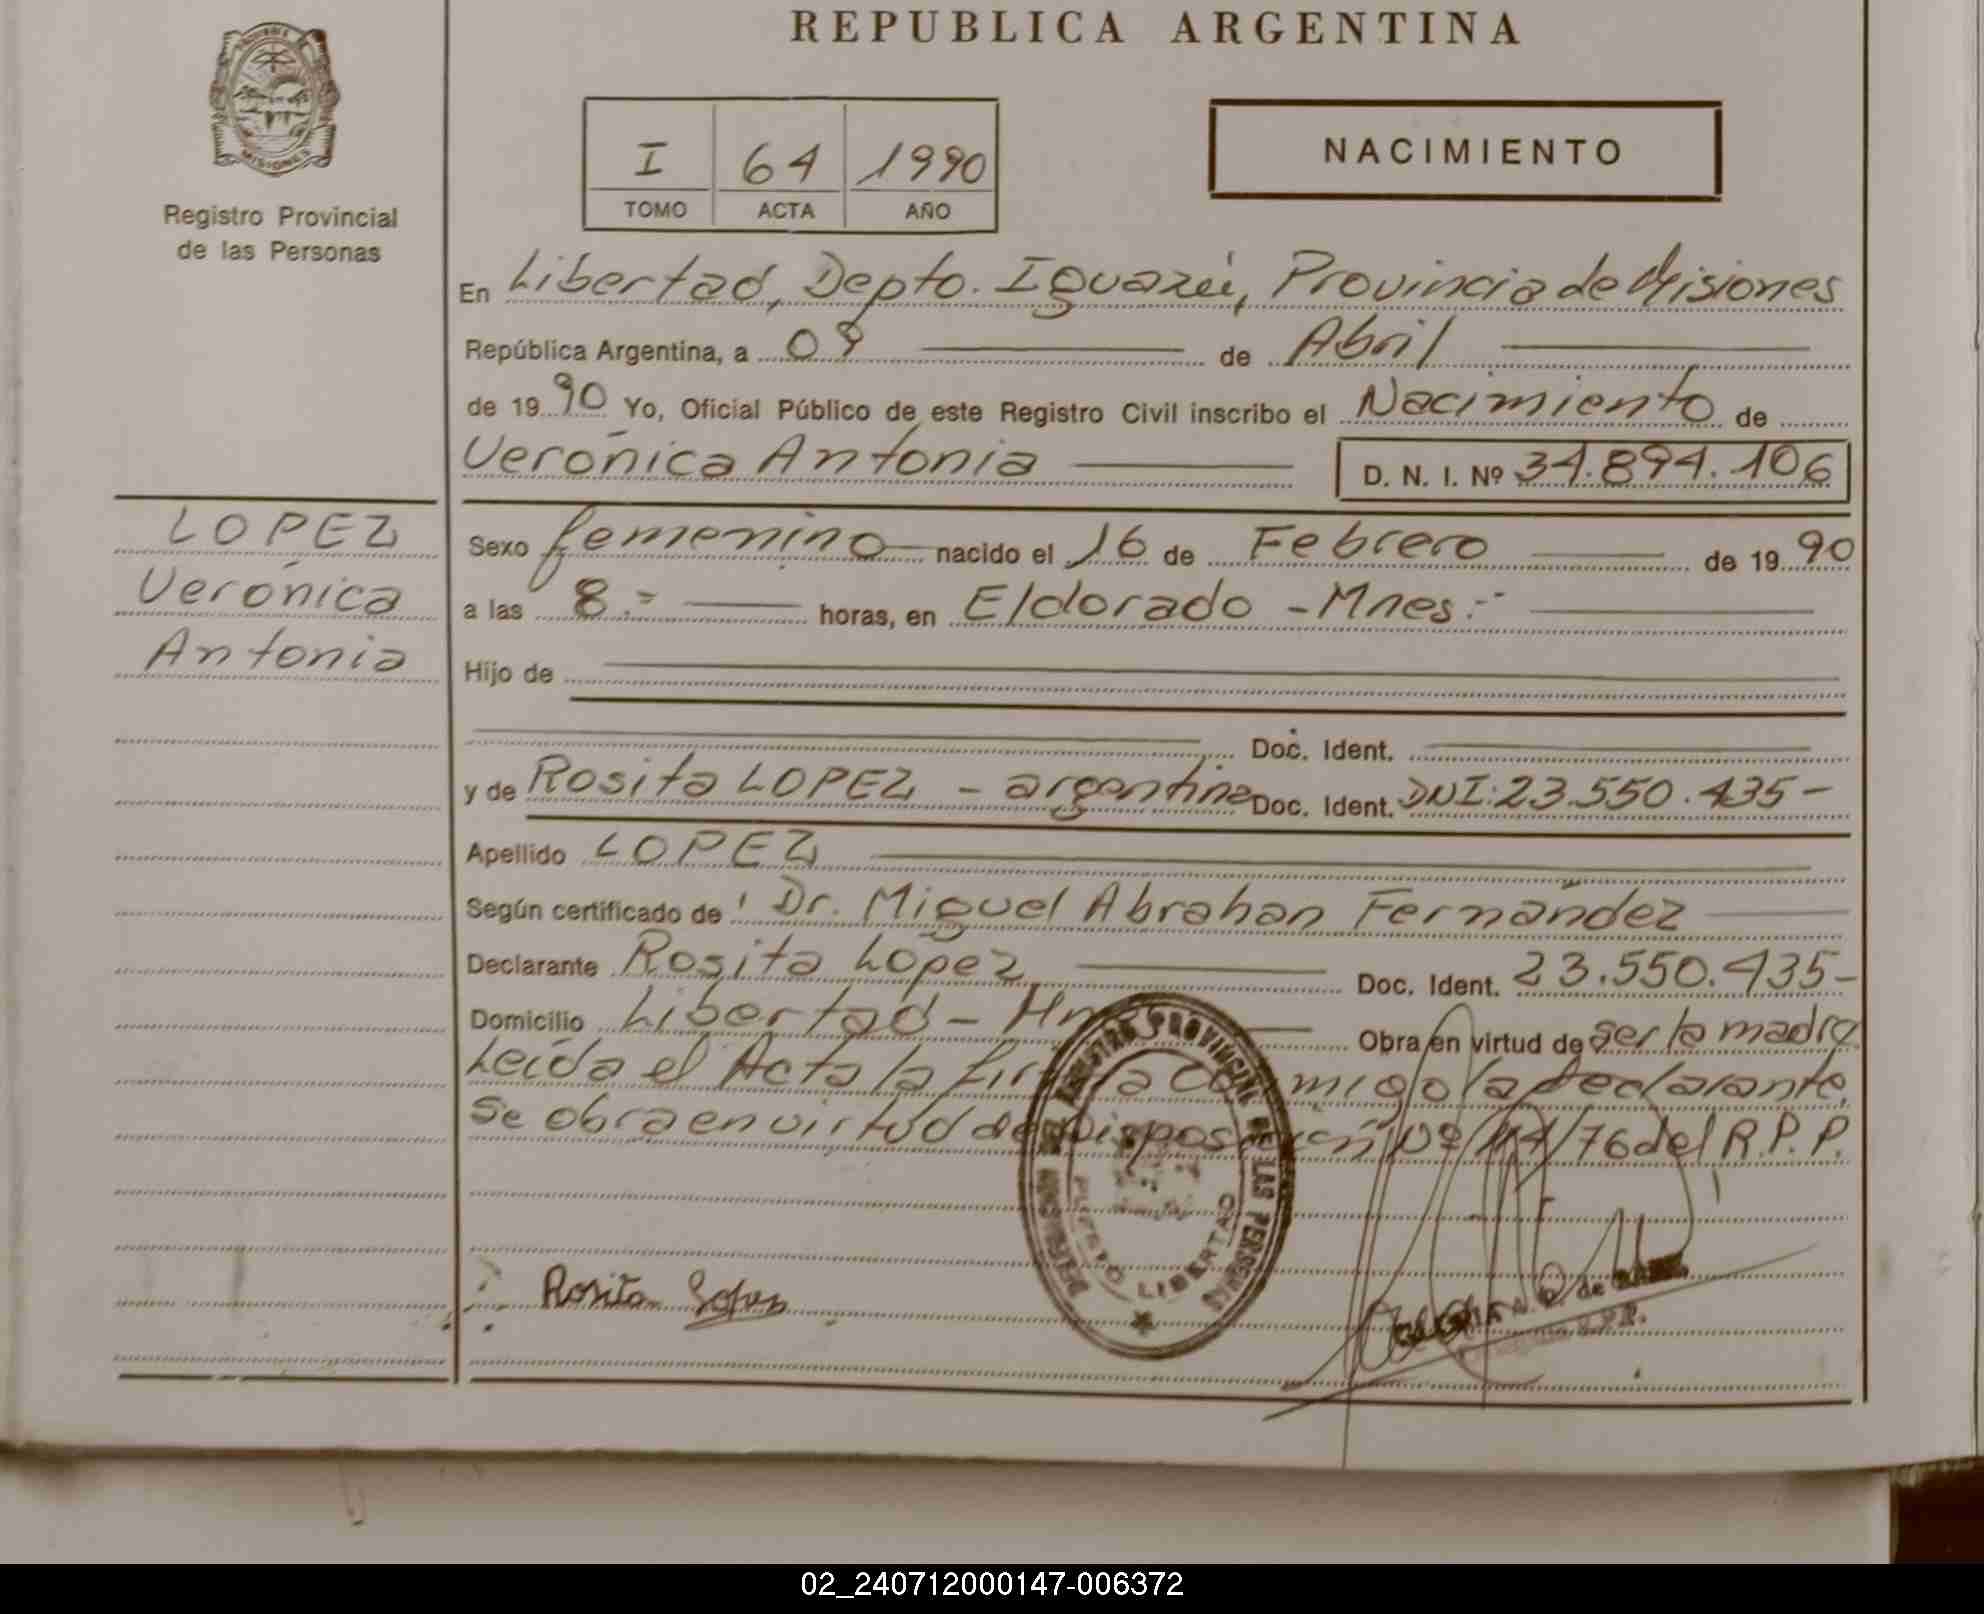 REPUBLICA ARGENTINA
MISIONES
Registro Provincial
de las Personas
I 64 1990
TOMO ACTA AÑO
NACIMIENTO
En Libertad, Depto. Iguazú, Provincia de Misiones
República Argentina, a 09 de Abril
de 1990 Yo, Oficial Público de este Registro Civil inscribo el Nacimiento de
Verónica Antonia D. N. I. Nº 34.894.106
LOPEZ
Verónica
Antonia
Sexo femenino nacido el 16 de Febrero de 1990
a las 8.= horas, en Eldorado - Mnes.-
Hijo de
Doc. Ident.
y de Rosita LOPEZ - argentina Doc. Ident. DNI: 23.550.435-
Apellido LOPEZ
Según certificado de Dr. Miguel Abrahan Fernández
Declarante Rosita Lopez Doc. Ident. 23.550.435-
Domicilio Libertad - Obra en virtud de ser la madre
Leída el Acta la firma conmigo la declarante.
Se obra en virtud de Disposición Nº /76 del R.P.P.
REGISTRO PROVINCIAL DE LAS PERSONAS
PUERTO LIBERTAD
Rosita Lopez
02_240712000147-006372